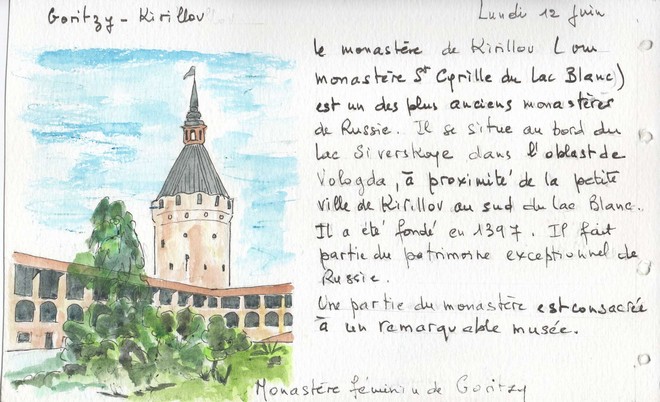 Goritzy - Kirillov
Lundi 12 Juin
le monastère de Kirillov (ou
monastère St Cyrille du Lac Blanc)
est un des plus anciens monastères
de Russie. Il se situe au bord du
Lac Siverskoye dans l'oblast de
Vologda, à proximité de la petite
ville de Kirillov au sud du Lac Blanc.
Il a été fondé en 1397. Il fait
partie du patrimoine exceptionnel de
Russie.
Une partie du monastère est consacrée
à un remarquable musée.
Monastère féminin de Goritzy